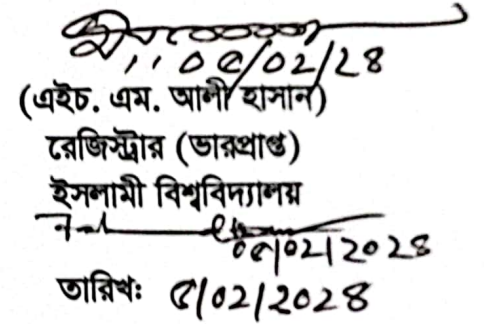 ০৫/০২/২৪
(এইচ. এম. আলী হাসান)
রেজিস্ট্রার (ভারপ্রাপ্ত)
ইসলামী বিশ্ববিদ্যালয়
০৫/০২/২০২৪
তারিখঃ ৫/০২/২০২৪